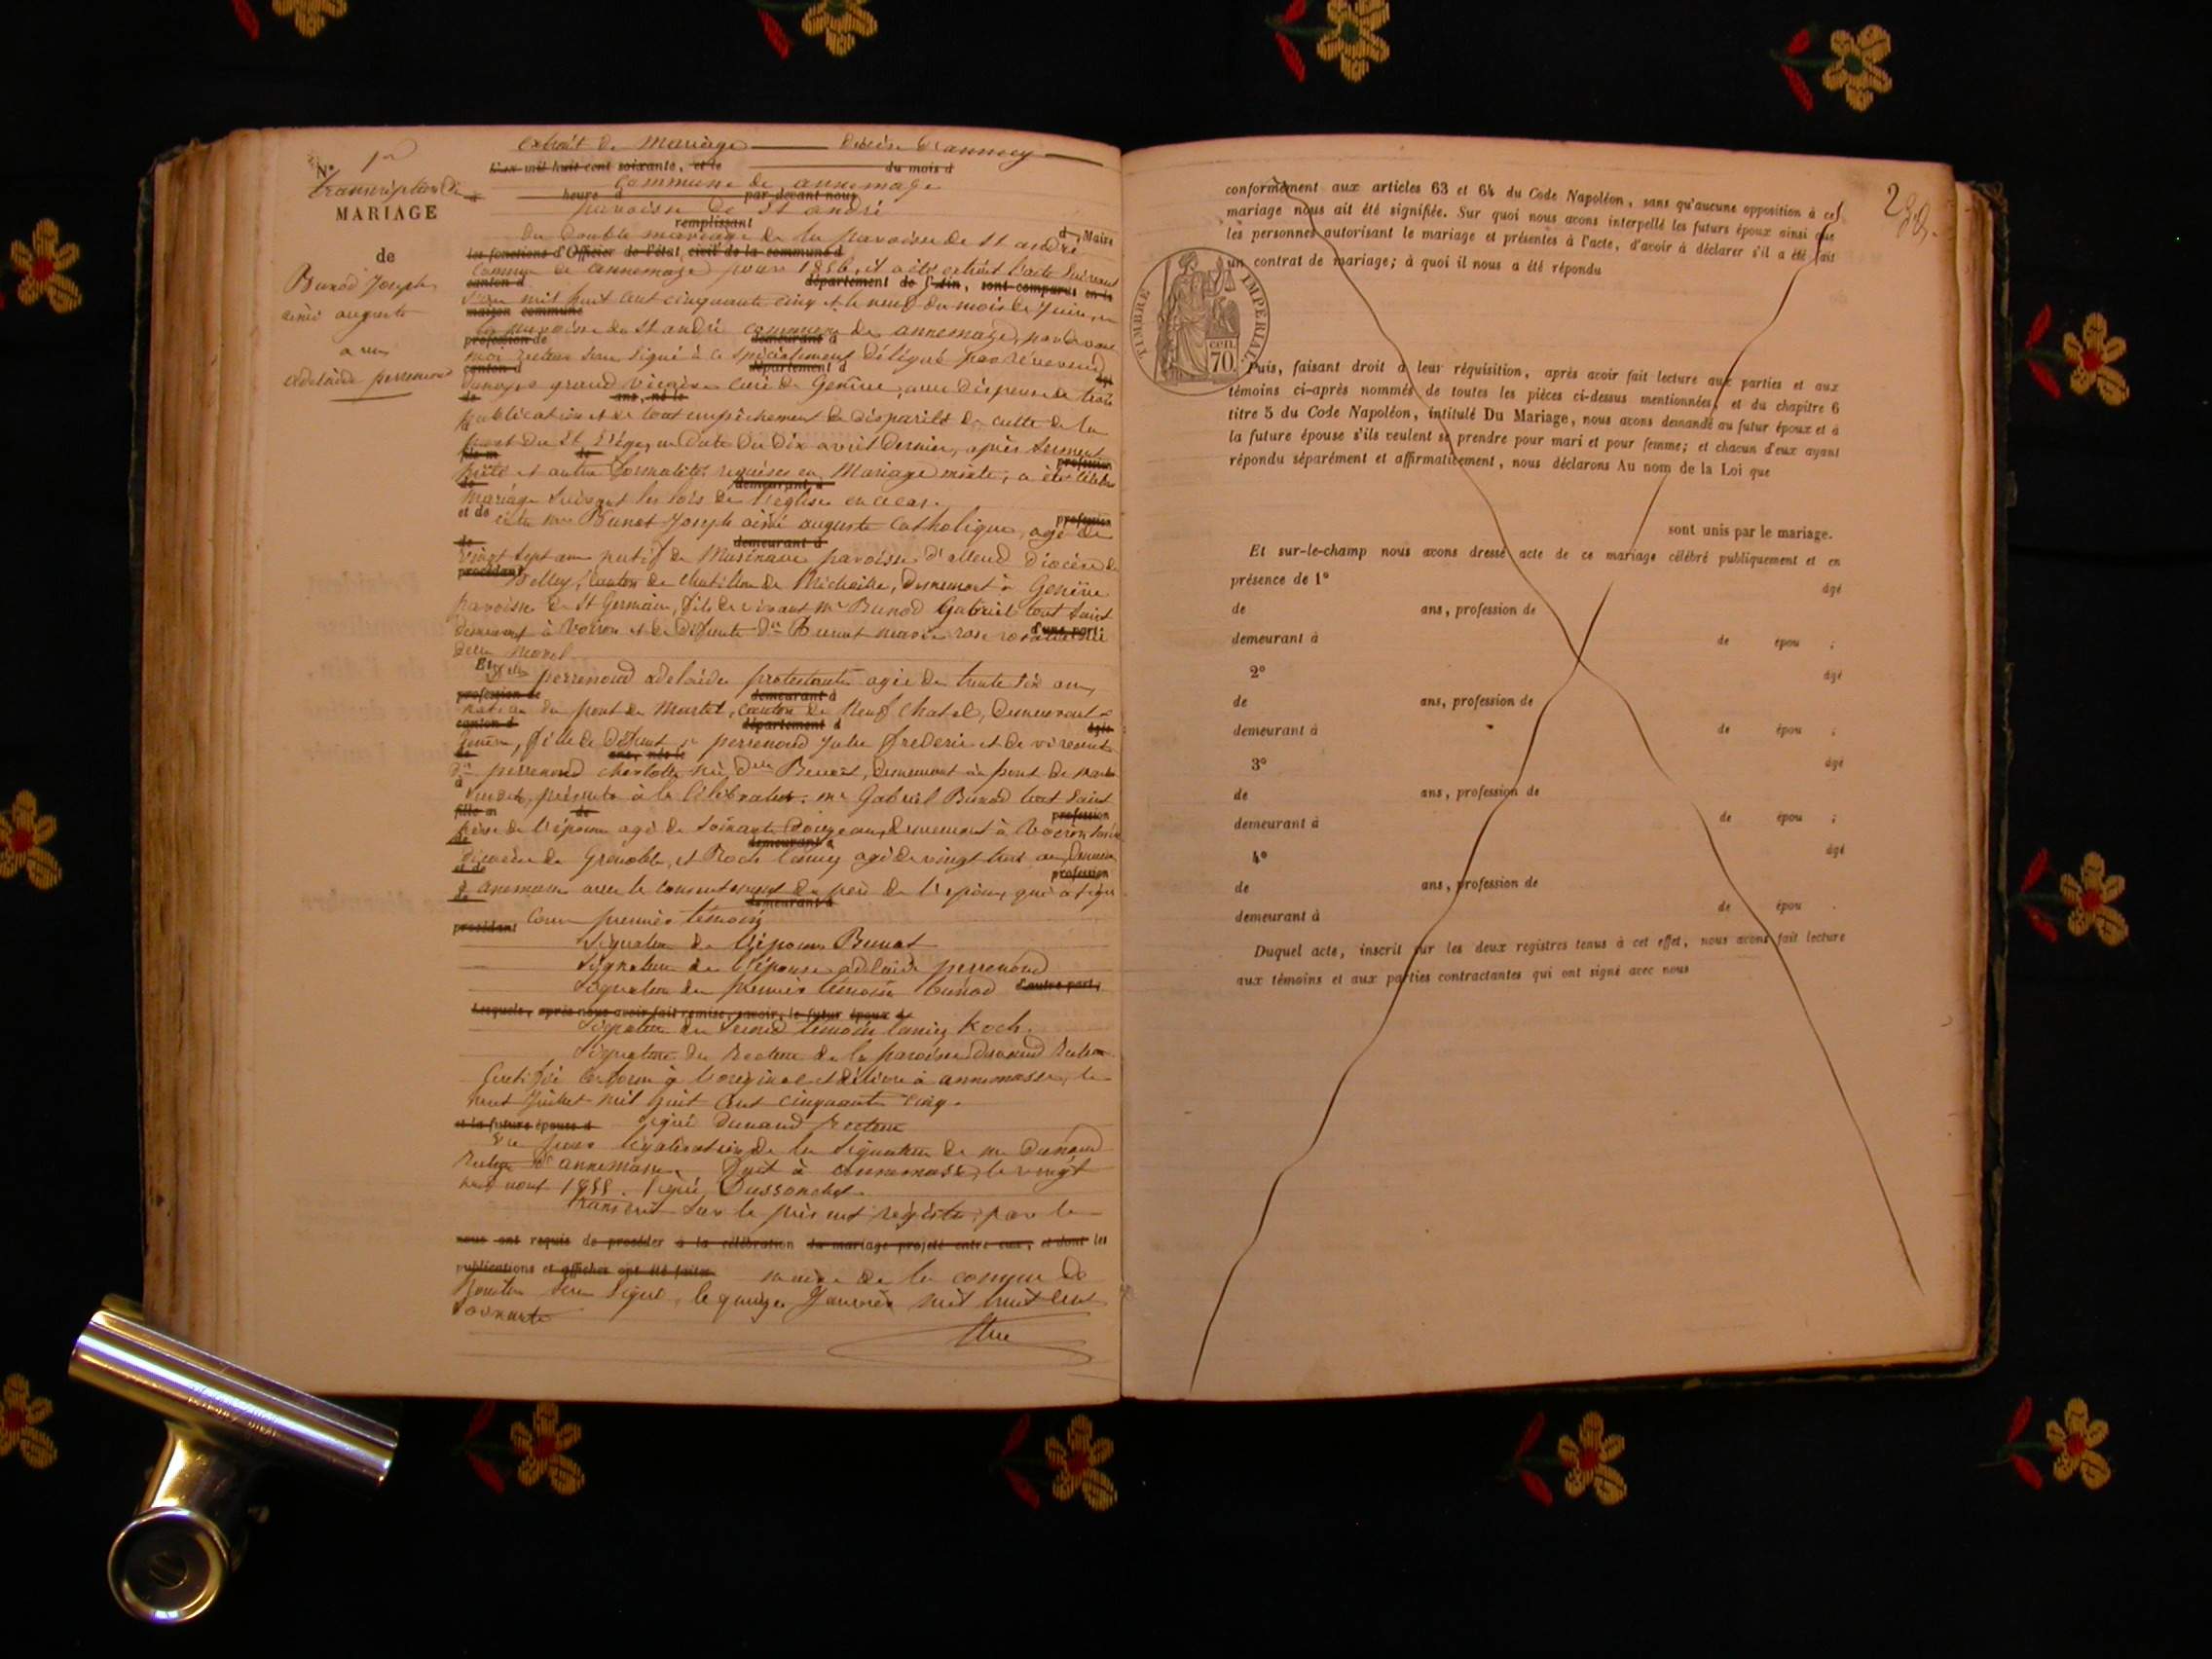 N° 1er
transcription de
MARIAGE
de
Bunod Joseph
aimé auguste
avec
adelaïde perrenoud
extrait de Mariage diocèse d'annecy
L'an mil huit cent soixante, et le du mois d
Commune de annemasse
heure d par-devant nous
paroisse de St andré
remplissant
du Double mariage de la paroisse de St andré
d Maire
les fonctions d'Officier de l'état civil de la commune d
Commune de annemasse pour 1856, il a été extrait l'acte suivant
canton d département de l'Ain, sont comparus en la
L'an mil huit cent cinquante cinq et le neuf du mois de Juin, en
maison commune
la paroisse de St andré commune de annemasse, par devant
profession de demeurant à
moi recteur sousigné à ce spécialement délégué par révérend
canton d département d âgé
grand vicaire curé de Genève, avec dispense de trois
de ans, né le
publications et de tout empêchement de disparité de culte de la
à
part du St Siège, en date du dix avril dernier, après serment
fils m de profession
prêté et autres formalités requises en Mariage mixte, a été célébré
de demeurant à
mariage suivant les lois de l'église en ce cas.
et de profession
entre mr Bunot Joseph aimé auguste Catholique, agé de
de demeurant à
vingt sept ans natif de Musinens paroisse d' diocèse de
procédant
Belley, Canton de Chatillon de Michaille, demeurant à Genève
paroisse de St Germain, fils de vivant Mr Bunod Gabriel tout saint
demeurant à Voiron et de défunte de Bunot marie rose née
d'une part;
delle Morel
Et delle perrenoud adelaïde protestante agée de trente six ans,
profession de demeurant à
native du pont de Martel, Canton de Neuf Chatel, demeurant à
canton d département d âgée
Genève, fille de défunt sr perrenoud Jules frederic et de vivante
de ans, née le
de perrenoud charlotte née delle Benoit, demeurant au pont de Martel
à
présents à la Célébration: mr Gabriel Bunod tout saint
fille m de profession
père de l'époux agé de soixante douze ans, demeurant à Voiron
de demeurant à
diocèse de Grenoble, et Roch lancy agé de vingt huit ans
et de profession
à annemasse avec le consentement du père de l'époux, qui a signé
de demeurant à
comme premier témoin
procédant
Signature de l'époux Bunot
Signature de l'épouse adelaïde perrenoud
Signature du premier témoin bunod d'autre part;
Lesquels, après nous avoir fait remise, savoir, le futur époux d
Signature du second témoin lancy Roch.
Signature du Recteur de la paroisse Dunand Recteur
Certifié conforme à l'original et délivré à annemasse, le
huit Juillet mil huit cent cinquante cinq.
et la future épouse d
signé Dunand Recteur
Vu pour légalisation de la signature de mr Dunand
Recteur d'annemasse. Fait à annemasse, le vingt
aout 1855. Signé, Dussonchet.
Transcrit sur le présent régistre, par le
nous ont requis de procéder à la célébration du mariage projeté entre eux, et dont les
publications et affiches ont été faites
maire de la commune de
sous signé, le quinze Janvier mil huit cent
soixante
conformément aux articles 63 et 64 du Code Napoléon, sans qu'aucune opposition à ce
mariage nous ait été signifiée. Sur quoi nous avons interpellé les futurs époux ainsi que
les personnes autorisant le mariage et présentes à l'acte, d'avoir à déclarer s'il a été fait
un contrat de mariage; à quoi il nous a été répondu
TIMBRE IMPÉRIAL
cen.
70.
Puis, faisant droit à leur réquisition, après avoir fait lecture aux parties et aux
témoins ci-après nommés de toutes les pièces ci-dessus mentionnées, et du chapitre 6
titre 5 du Code Napoléon, intitulé Du Mariage, nous avons demandé au futur époux et à
la future épouse s'ils veulent se prendre pour mari et pour femme; et chacun d'eux ayant
répondu séparément et affirmativement, nous déclarons Au nom de la Loi que
sont unis par le mariage.
Et sur-le-champ nous avons dressé acte de ce mariage célébré publiquement et en
présence de 1° âgé
de ans, profession de
demeurant à de épou ;
2° âgé
de ans, profession de
demeurant à de épou ;
3° âgé
de ans, profession de
demeurant à de épou ;
4° âgé
de ans, profession de
demeurant à de épou .
Duquel acte, inscrit sur les deux registres tenus à cet effet, nous avons fait lecture
aux témoins et aux parties contractantes qui ont signé avec nous